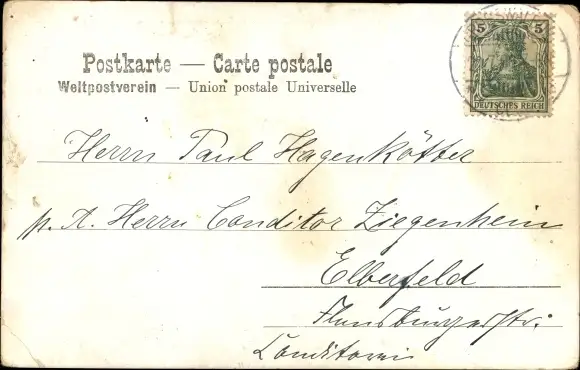 Postkarte — Carte postale
Weltpostverein — Union postale Universelle
5 5
DEUTSCHES REICH
Herrn Paul Hagenkötter
p. A. Herrn Conditor Ziegenhein
Elberfeld
Flensburgerstr:
Conditorei